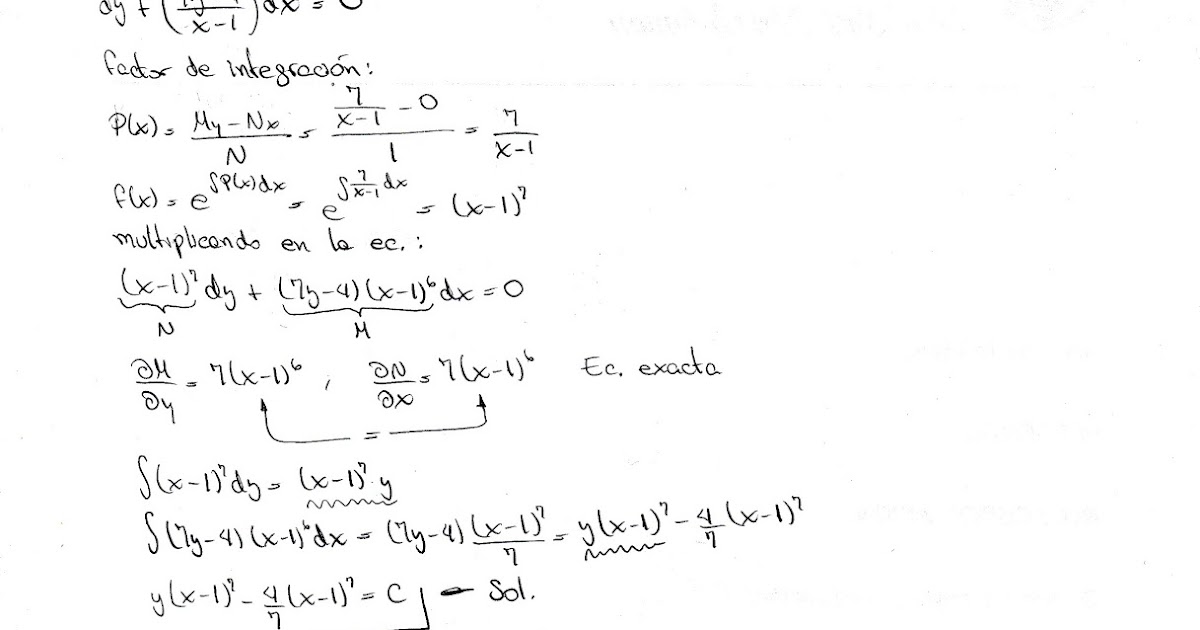 dy + ( /x-1)dx = 0
factor de integración:
P(x) = My-Nx/N = (7/x-1 - 0)/1 = 7/x-1
f(x) = e^∫P(x)dx = e^∫7/x-1 dx = (x-1)⁷
multiplicando en la ec.:
(x-1)⁷dy + (7y-4)(x-1)⁶dx = 0
N M
∂M/∂y = 7(x-1)⁶ , ∂N/∂x = 7(x-1)⁶ Ec. exacta
=
∫(x-1)⁷dy = (x-1)⁷·y
∫(7y-4)(x-1)⁶dx = (7y-4)(x-1)⁷/7 = y(x-1)⁷ - 4/7(x-1)⁷
y(x-1)⁷ - 4/7(x-1)⁷ = C - Sol.